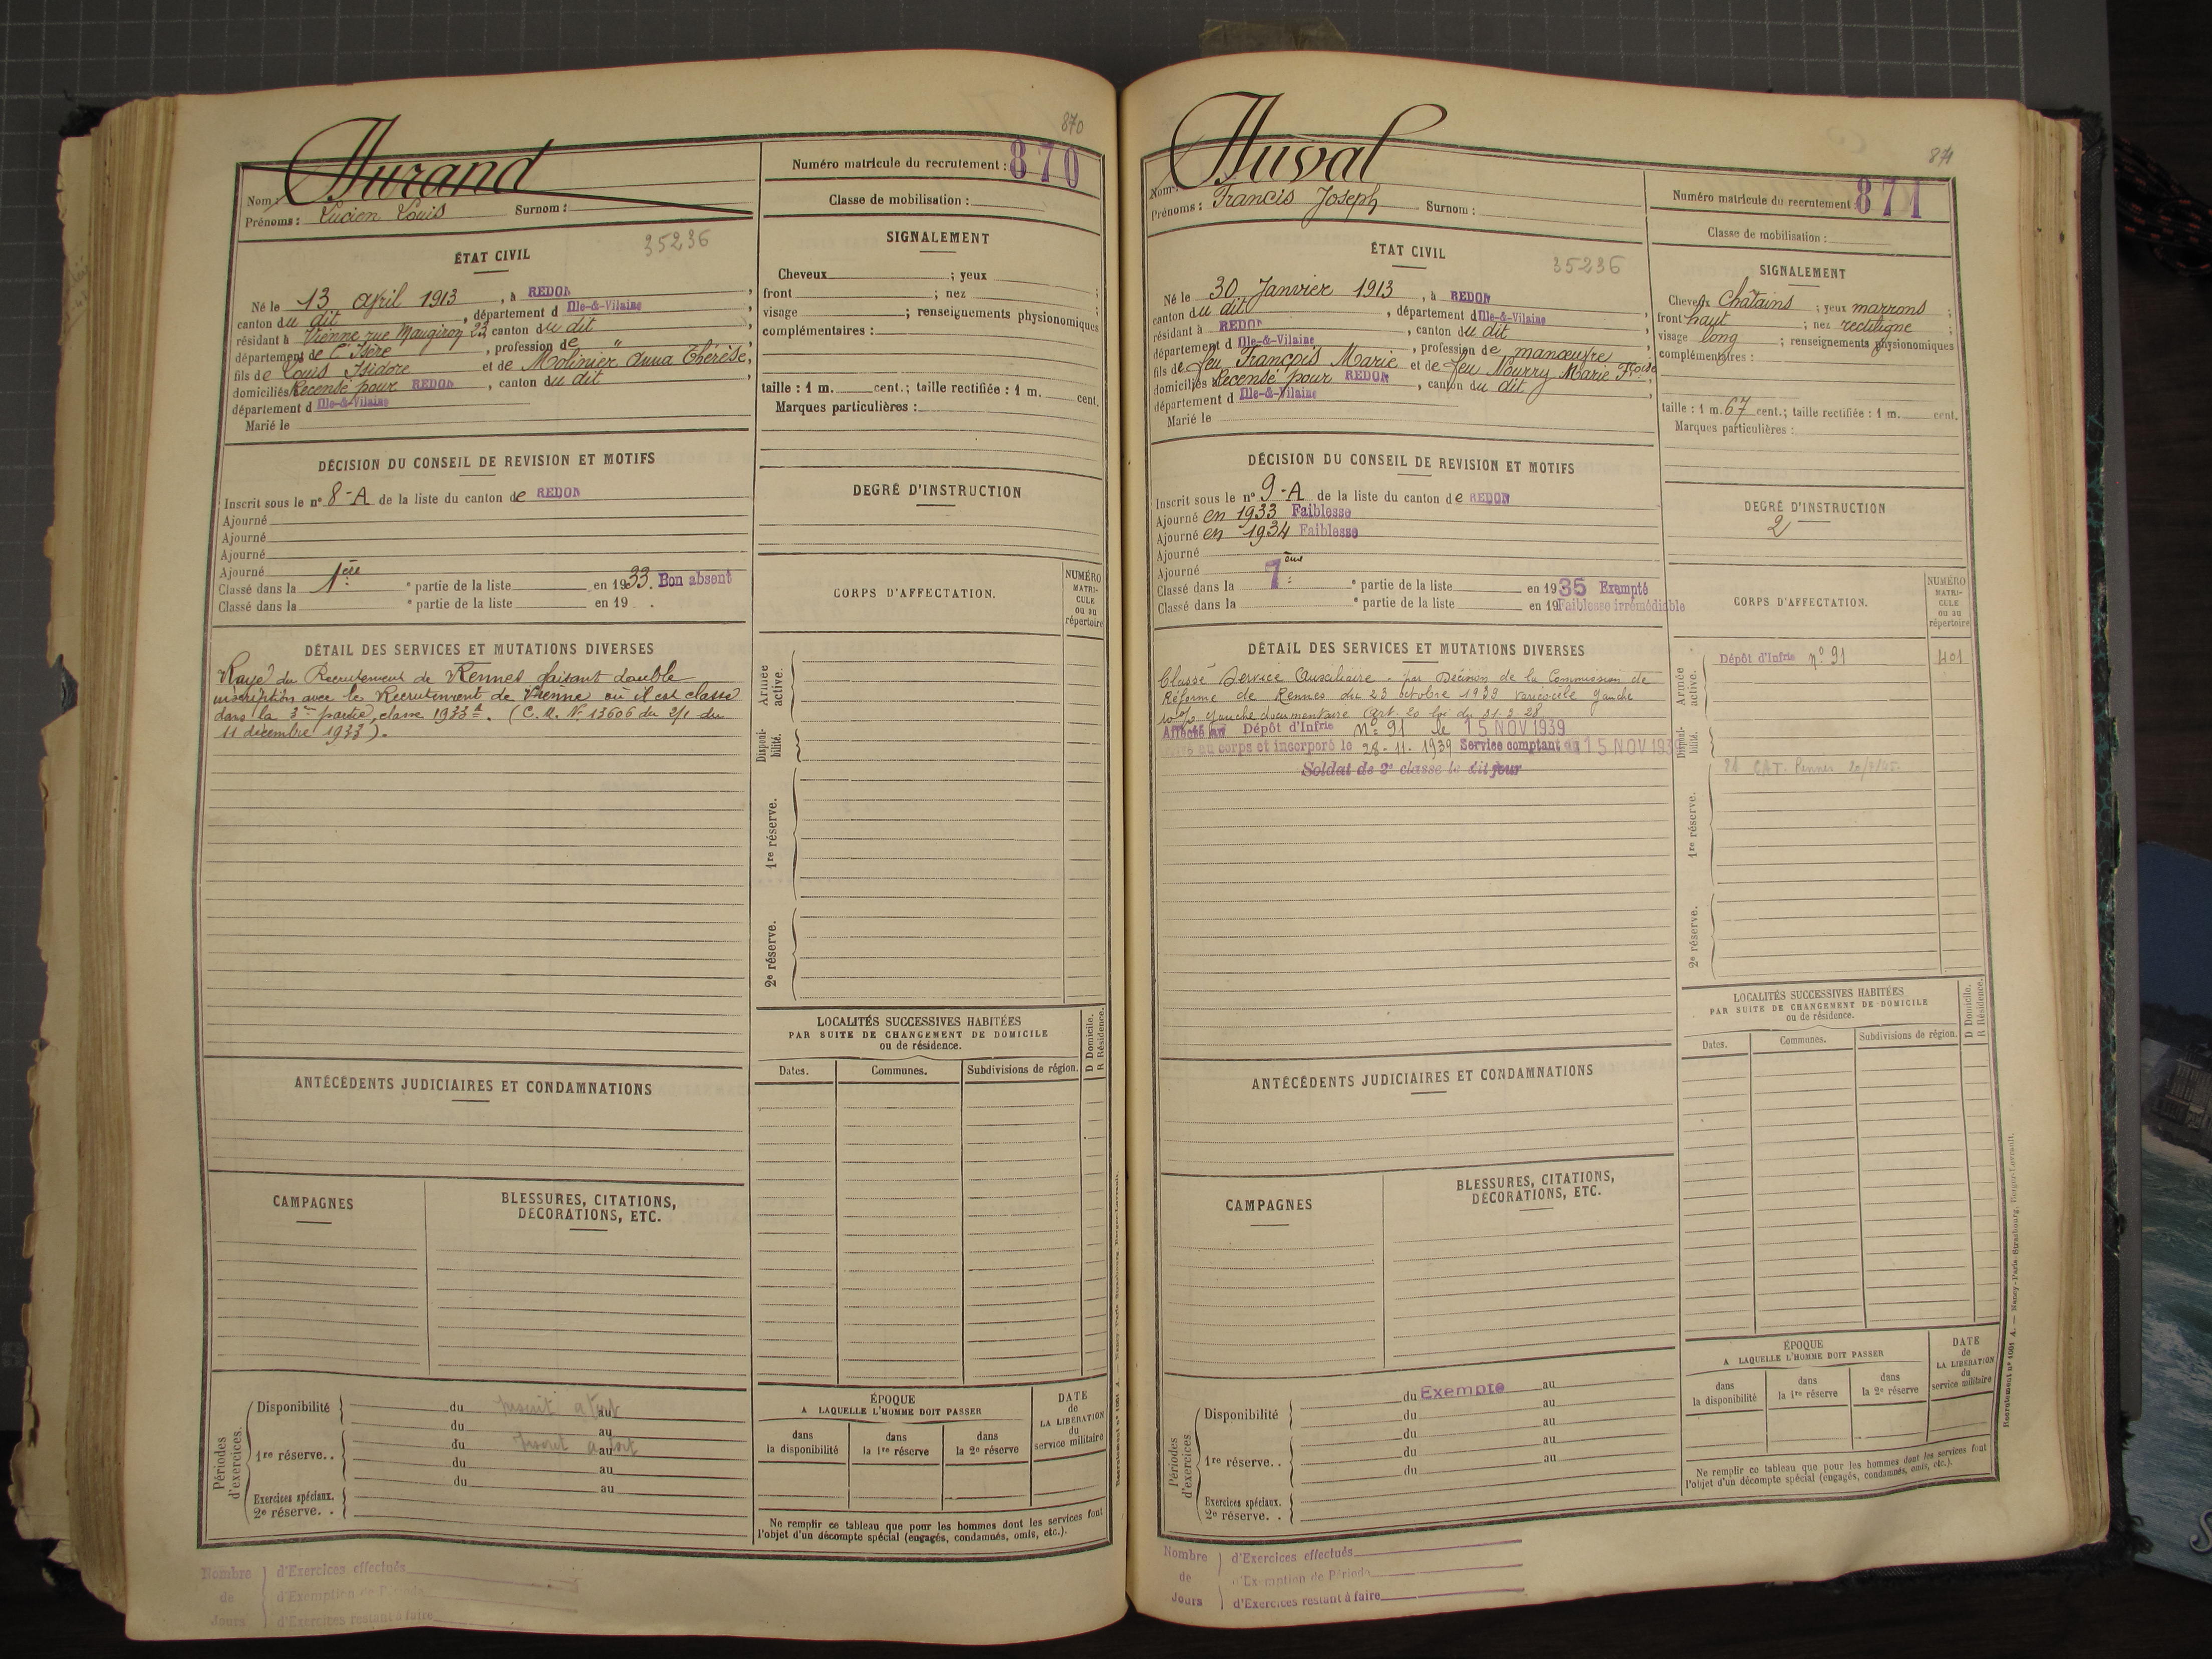 870
Durand
Nom :
Prénoms : Lucien Louis Surnom :
Numéro matricule du recrutement : 870
Classe de mobilisation :
ÉTAT CIVIL
35236
Né le 13 avril 1913, à REDON,
canton du dit, département d Ille-&-Vilaine
résidant à Vienne rue Maugiron 23, canton du dit
département de l'Isère, profession de "
fils de Louis Isidore et de Molinier Anna Thérèse,
domiciliés Recensé pour REDON, canton du dit
département d Ille-&-Vilaine
Marié le
SIGNALEMENT
Cheveux ; yeux
front ; nez ;
visage ; renseignements physionomiques
complémentaires :
taille : 1 m. cent.; taille rectifiée : 1 m. cent.
Marques particulières :
DÉCISION DU CONSEIL DE REVISION ET MOTIFS
Inscrit sous le n° 8-A de la liste du canton de REDON
Ajourné
Ajourné
Ajourné
Ajourné
Classé dans la 1ère e partie de la liste en 1933. Bon absent
Classé dans la e partie de la liste en 19 .
DEGRÉ D'INSTRUCTION
CORPS D'AFFECTATION.
NUMÉRO
MATRI-
CULE
ou au
répertoire
DÉTAIL DES SERVICES ET MUTATIONS DIVERSES
Rayé du Recrutement de Rennes faisant double
inscription avec le Recrutement de Vienne où il est classé
dans la 3me partie, classe 1933 A. (C. M. N° 13606 du 2/1 du
11 décembre 1933).
Armée
active.
Disponi-
bilité.
1re réserve.
2e réserve.
LOCALITÉS SUCCESSIVES HABITÉES
PAR SUITE DE CHANGEMENT DE DOMICILE
ou de résidence.
D Domicile.
R Résidence.
Dates. Communes. Subdivisions de région.
ANTÉCÉDENTS JUDICIAIRES ET CONDAMNATIONS
CAMPAGNES
BLESSURES, CITATIONS,
DÉCORATIONS, ETC.
Périodes
d'exercices.
Disponibilité
du au
du au
1re réserve..
du au
du au
du au
Exercices spéciaux.
2e réserve. .
ÉPOQUE
A LAQUELLE L'HOMME DOIT PASSER
dans
la disponibilité
dans
la 1re réserve
dans
la 2e réserve
DATE
de
LA LIBÉRATION
du
service militaire
Ne remplir ce tableau que pour les hommes dont les services font
l'objet d'un décompte spécial (engagés, condamnés, omis, etc.).
Nombre
de
Jours
d'Exercices effectués
d'Exemption de Période
d'Exercices restant à faire
871
Duval
Nom :
Prénoms : Francis Joseph Surnom :
Numéro matricule du recrutement : 871
Classe de mobilisation :
ÉTAT CIVIL
35236
Né le 30 Janvier 1913, à REDON
canton du dit, département d Ille-&-Vilaine
résidant à REDON, canton du dit
département d Ille-&-Vilaine, profession de manœuvre
fils de feu François Marie et de feu Nourry Marie Fçoise
domiciliés Recensé pour REDON, canton du dit
département d Ille-&-Vilaine
Marié le
SIGNALEMENT
Cheveux Châtains ; yeux marrons ;
front haut ; nez rectiligne ;
visage long ; renseignements physionomiques
complémentaires :
taille : 1 m. 67 cent.; taille rectifiée : 1 m. cent.
Marques particulières :
DÉCISION DU CONSEIL DE REVISION ET MOTIFS
Inscrit sous le n° 9-A de la liste du canton de REDON
Ajourné en 1933 Faiblesse
Ajourné en 1934 Faiblesse
Ajourné
Ajourné
Classé dans la 7ème e partie de la liste en 1935 Exempté
Classé dans la e partie de la liste en 19 Faiblesse irrémédiable
DEGRÉ D'INSTRUCTION
2
CORPS D'AFFECTATION.
NUMÉRO
MATRI-
CULE
ou au
répertoire
DÉTAIL DES SERVICES ET MUTATIONS DIVERSES
Classé Service Auxiliaire - par Décision de la Commission de
Réforme de Rennes du 23 octobre 1939 varicocèle gauche
10 % gauche documentaire Art. 20 loi du 31-3-28
Affecté au Dépôt d'Infrie N° 91 le 15 NOV 1939
au corps et incorporé le 28-11-1939 Service comptant du 15 NOV 1939
Soldat de 2e classe le dit jour
Armée
active.
Dépôt d'Infrie n° 91 401
Disponi-
bilité.
1re réserve.
2e réserve.
LOCALITÉS SUCCESSIVES HABITÉES
PAR SUITE DE CHANGEMENT DE DOMICILE
ou de résidence.
D Domicile.
R Résidence.
Dates. Communes. Subdivisions de région.
ANTÉCÉDENTS JUDICIAIRES ET CONDAMNATIONS
CAMPAGNES
BLESSURES, CITATIONS,
DÉCORATIONS, ETC.
Périodes
d'exercices
Disponibilité
du Exempte au
du au
du au
1re réserve..
du au
du au
Exercices spéciaux.
2e réserve. .
ÉPOQUE
A LAQUELLE L'HOMME DOIT PASSER
dans
la disponibilité
dans
la 1re réserve
dans
la 2e réserve
DATE
de
LA LIBÉRATION
du
service militaire
Ne remplir ce tableau que pour les hommes dont les services font
l'objet d'un décompte spécial (engagés, condamnés, omis, etc.).
Recrutement n° 1001 A. — Nancy-Paris-Strasbourg, Berger-Levrault.
Nombre
de
Jours
d'Exercices effectués
d'Exemption de Période
d'Exercices restant à faire